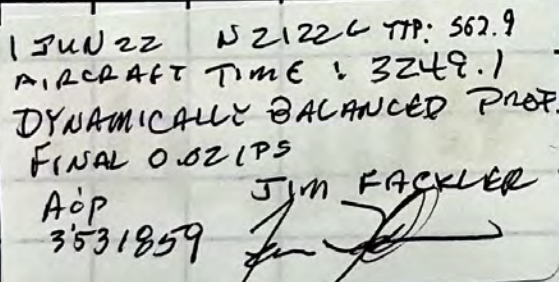 1 JUN 22 N2122G TTP: 562.9
AIRCRAFT TIME : 3249.1
DYNAMICALLY BALANCED PROP.
FINAL 0.02 IPS
JIM FACKLER
A&P
3531859